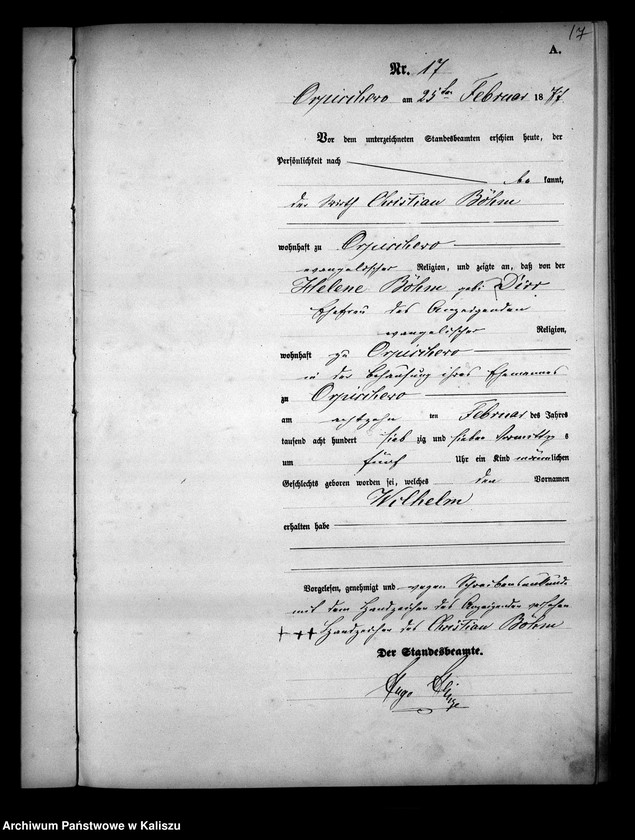 17
A.
Nr. 17
Orpischewo am 25ten Februar 1877
Vor dem unterzeichneten Standesbeamten erschien heute, der
Persönlichkeit nach
be kannt,
der Wirth Christian Böhm
wohnhaft zu Orpischewo
evangelischer Religion, und zeigte an, daß von der
Helene Böhm geb. Dirr
Ehefrau des Anzeigenden
evangelischer Religion,
wohnhaft zu Orpischewo
in der Behausung ihres Ehemannes
zu Orpischewo
am achtzehn ten Februar des Jahres
tausend acht hundert sieb zig und sieben Vormittags
um fünf Uhr ein Kind männlichen
Geschlechts geboren worden sei, welches den Vornamen
Wilhelm
erhalten habe
Vorgelesen, genehmigt und wegen Schreibensunkunde
mit dem Handzeichen des Anzeigenden versehen
+++ Handzeichen des Christian Böhm
Der Standesbeamte.
Hugo
Archiwum Państwowe w Kaliszu